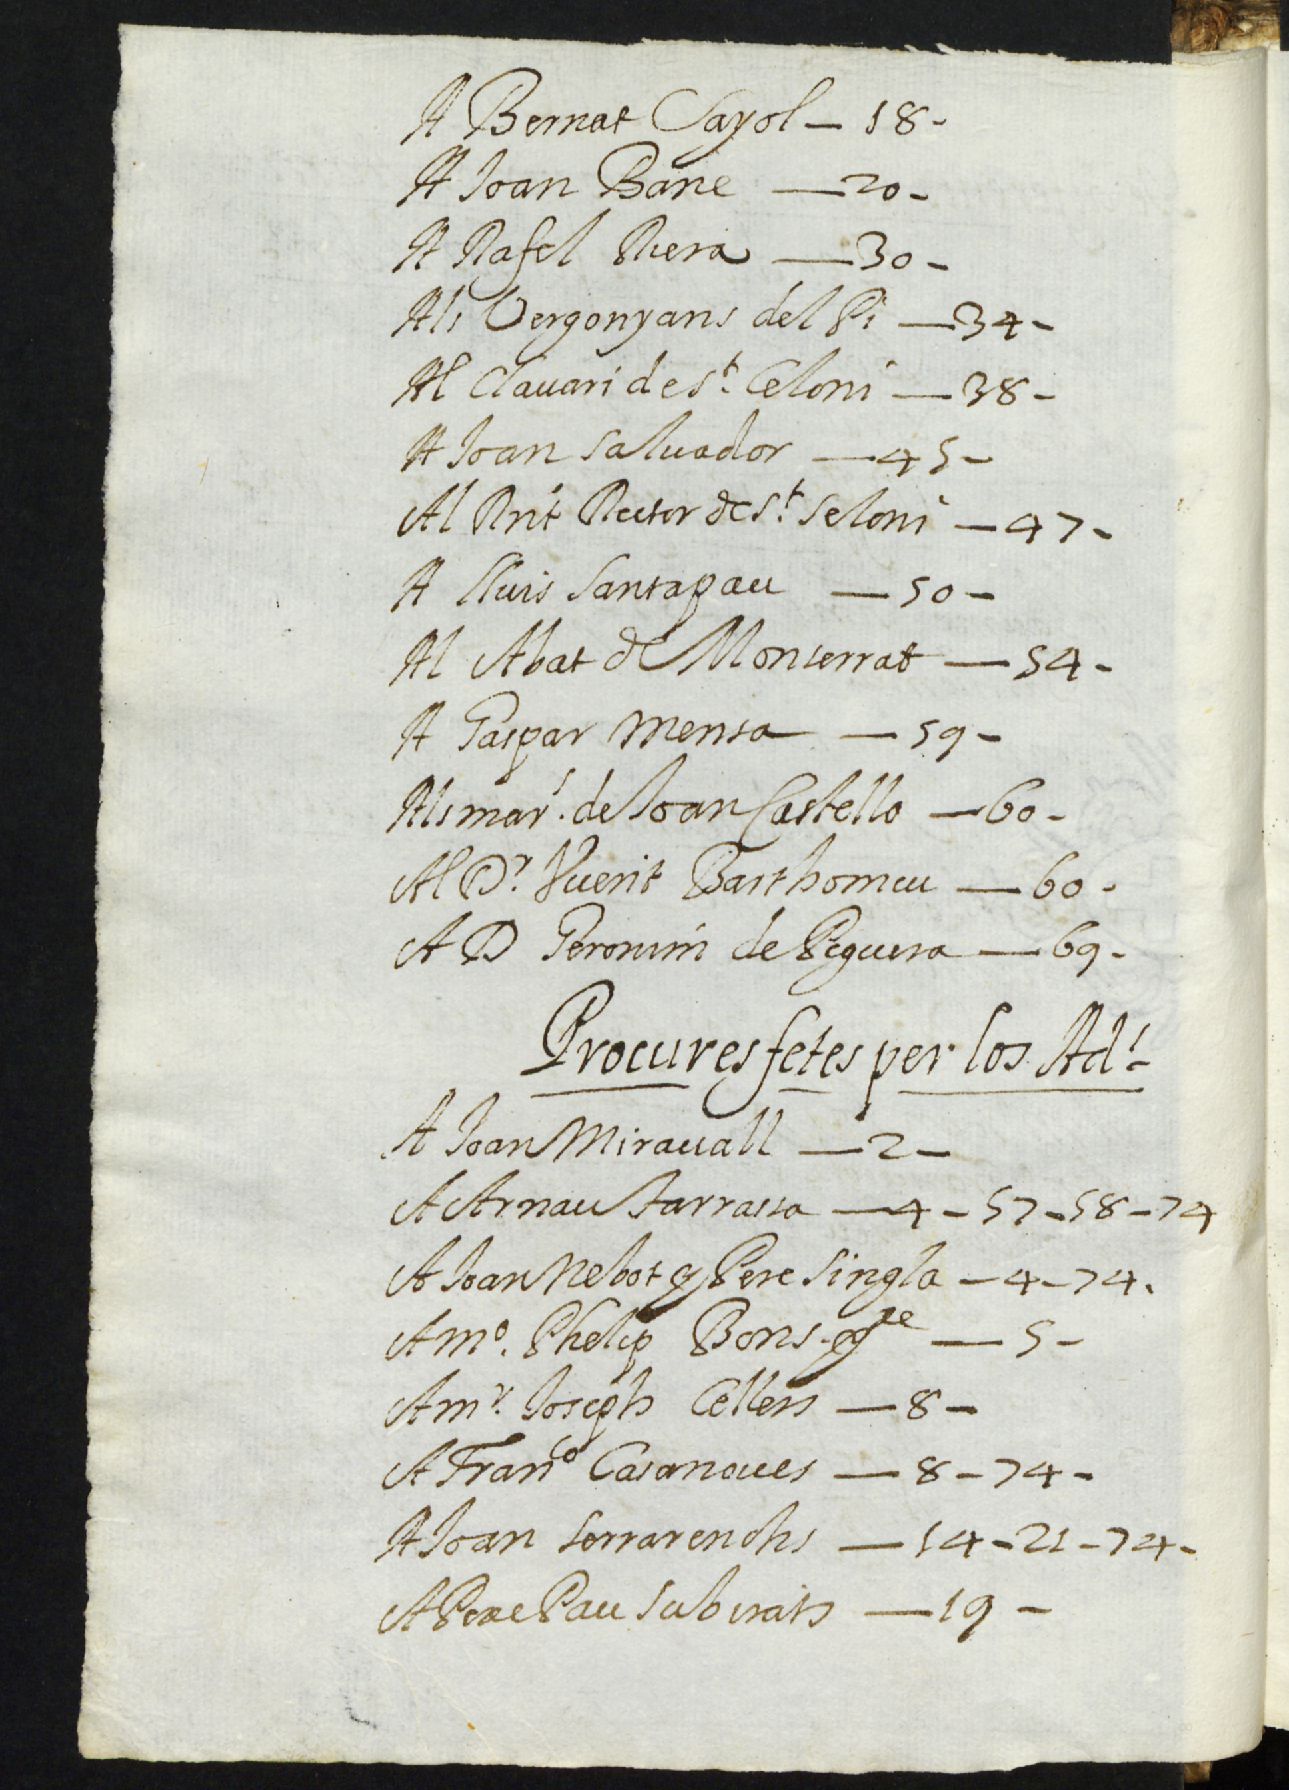 A Bernat Sayol — 18 -
A Joan Bane — 20 -
A Rafel Riera — 30 -
Als Vergonyans del Pi — 34 -
Al Clauari de St. Celoni — 38 -
A Joan Saluador — 45 -
Al Rnt Rector de St. Seloni — 47 -
A Lluis Santapau — 50 -
Al Abat de Monserrat — 54 -
A Gaspar Mensa — 59 -
Als mars. de Joan Castello — 60 -
Al Dr. Barthomeu — 60 -
A D Geronim de Peguera — 69 -
Procures fetes per los Ads.
A Joan Mirauall — 2 -
A Arnau Tarrassa — 4 - 57 - 58 - 74
A Joan Nebot y Pere Singla — 4 - 74.
A mo. Phelip Bons — 5 -
A mr. Joseph Cellers — 8 -
A Franco Casanoues — 8 - 74 -
A Joan Serrarenchs — 14 - 21 - 74 -
A Pere Pau Subirats — 19 -